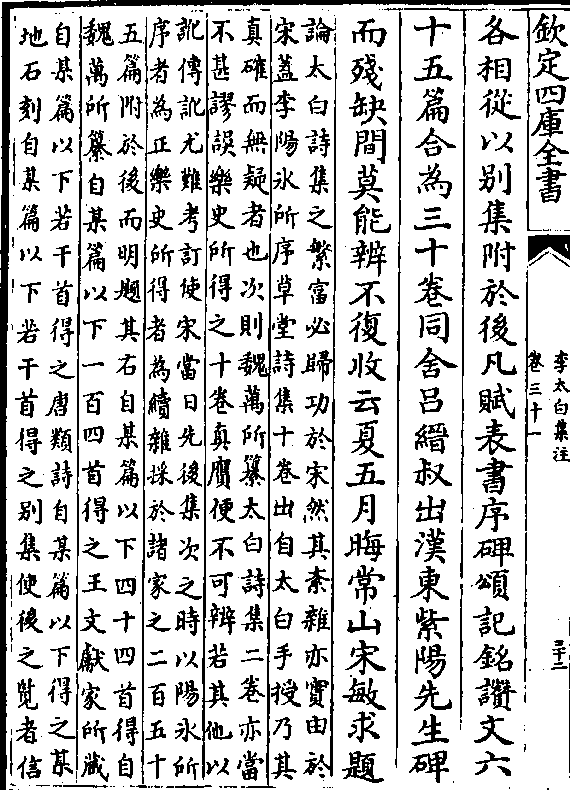 欽定四庫全書
李太白集注
卷三十一
三十二
各相從以別集附於後凡賦表書序碑頌記銘讚文六
十五篇合為三十卷同舍呂縉叔出漢東紫陽先生碑
而殘缺間莫能辨不復收云夏五月晦常山宋敏求題
論太白詩集之繁富必歸功於宋然其紊雜亦實由於
宋蓋李陽氷所序草堂詩集十卷出自太白手授乃其
真確而無疑者也次則魏萬所纂太白詩集二卷亦當
不甚謬誤樂史所得之十卷真贋便不可辨若其他以
訛傳訛尤難考訂使宋當日先後集次之時以陽氷所
序者為正樂史所得者為續雜採於諸家之二百五十
五篇附於後而明題其右自某篇以下四十四首得自
魏萬所纂自某篇以下一百四首得之王文獻家所藏
自某篇以下若干首得之唐類詩自某篇以下得之某
地石刻自某篇以下若干首得之別集使後之覽者信